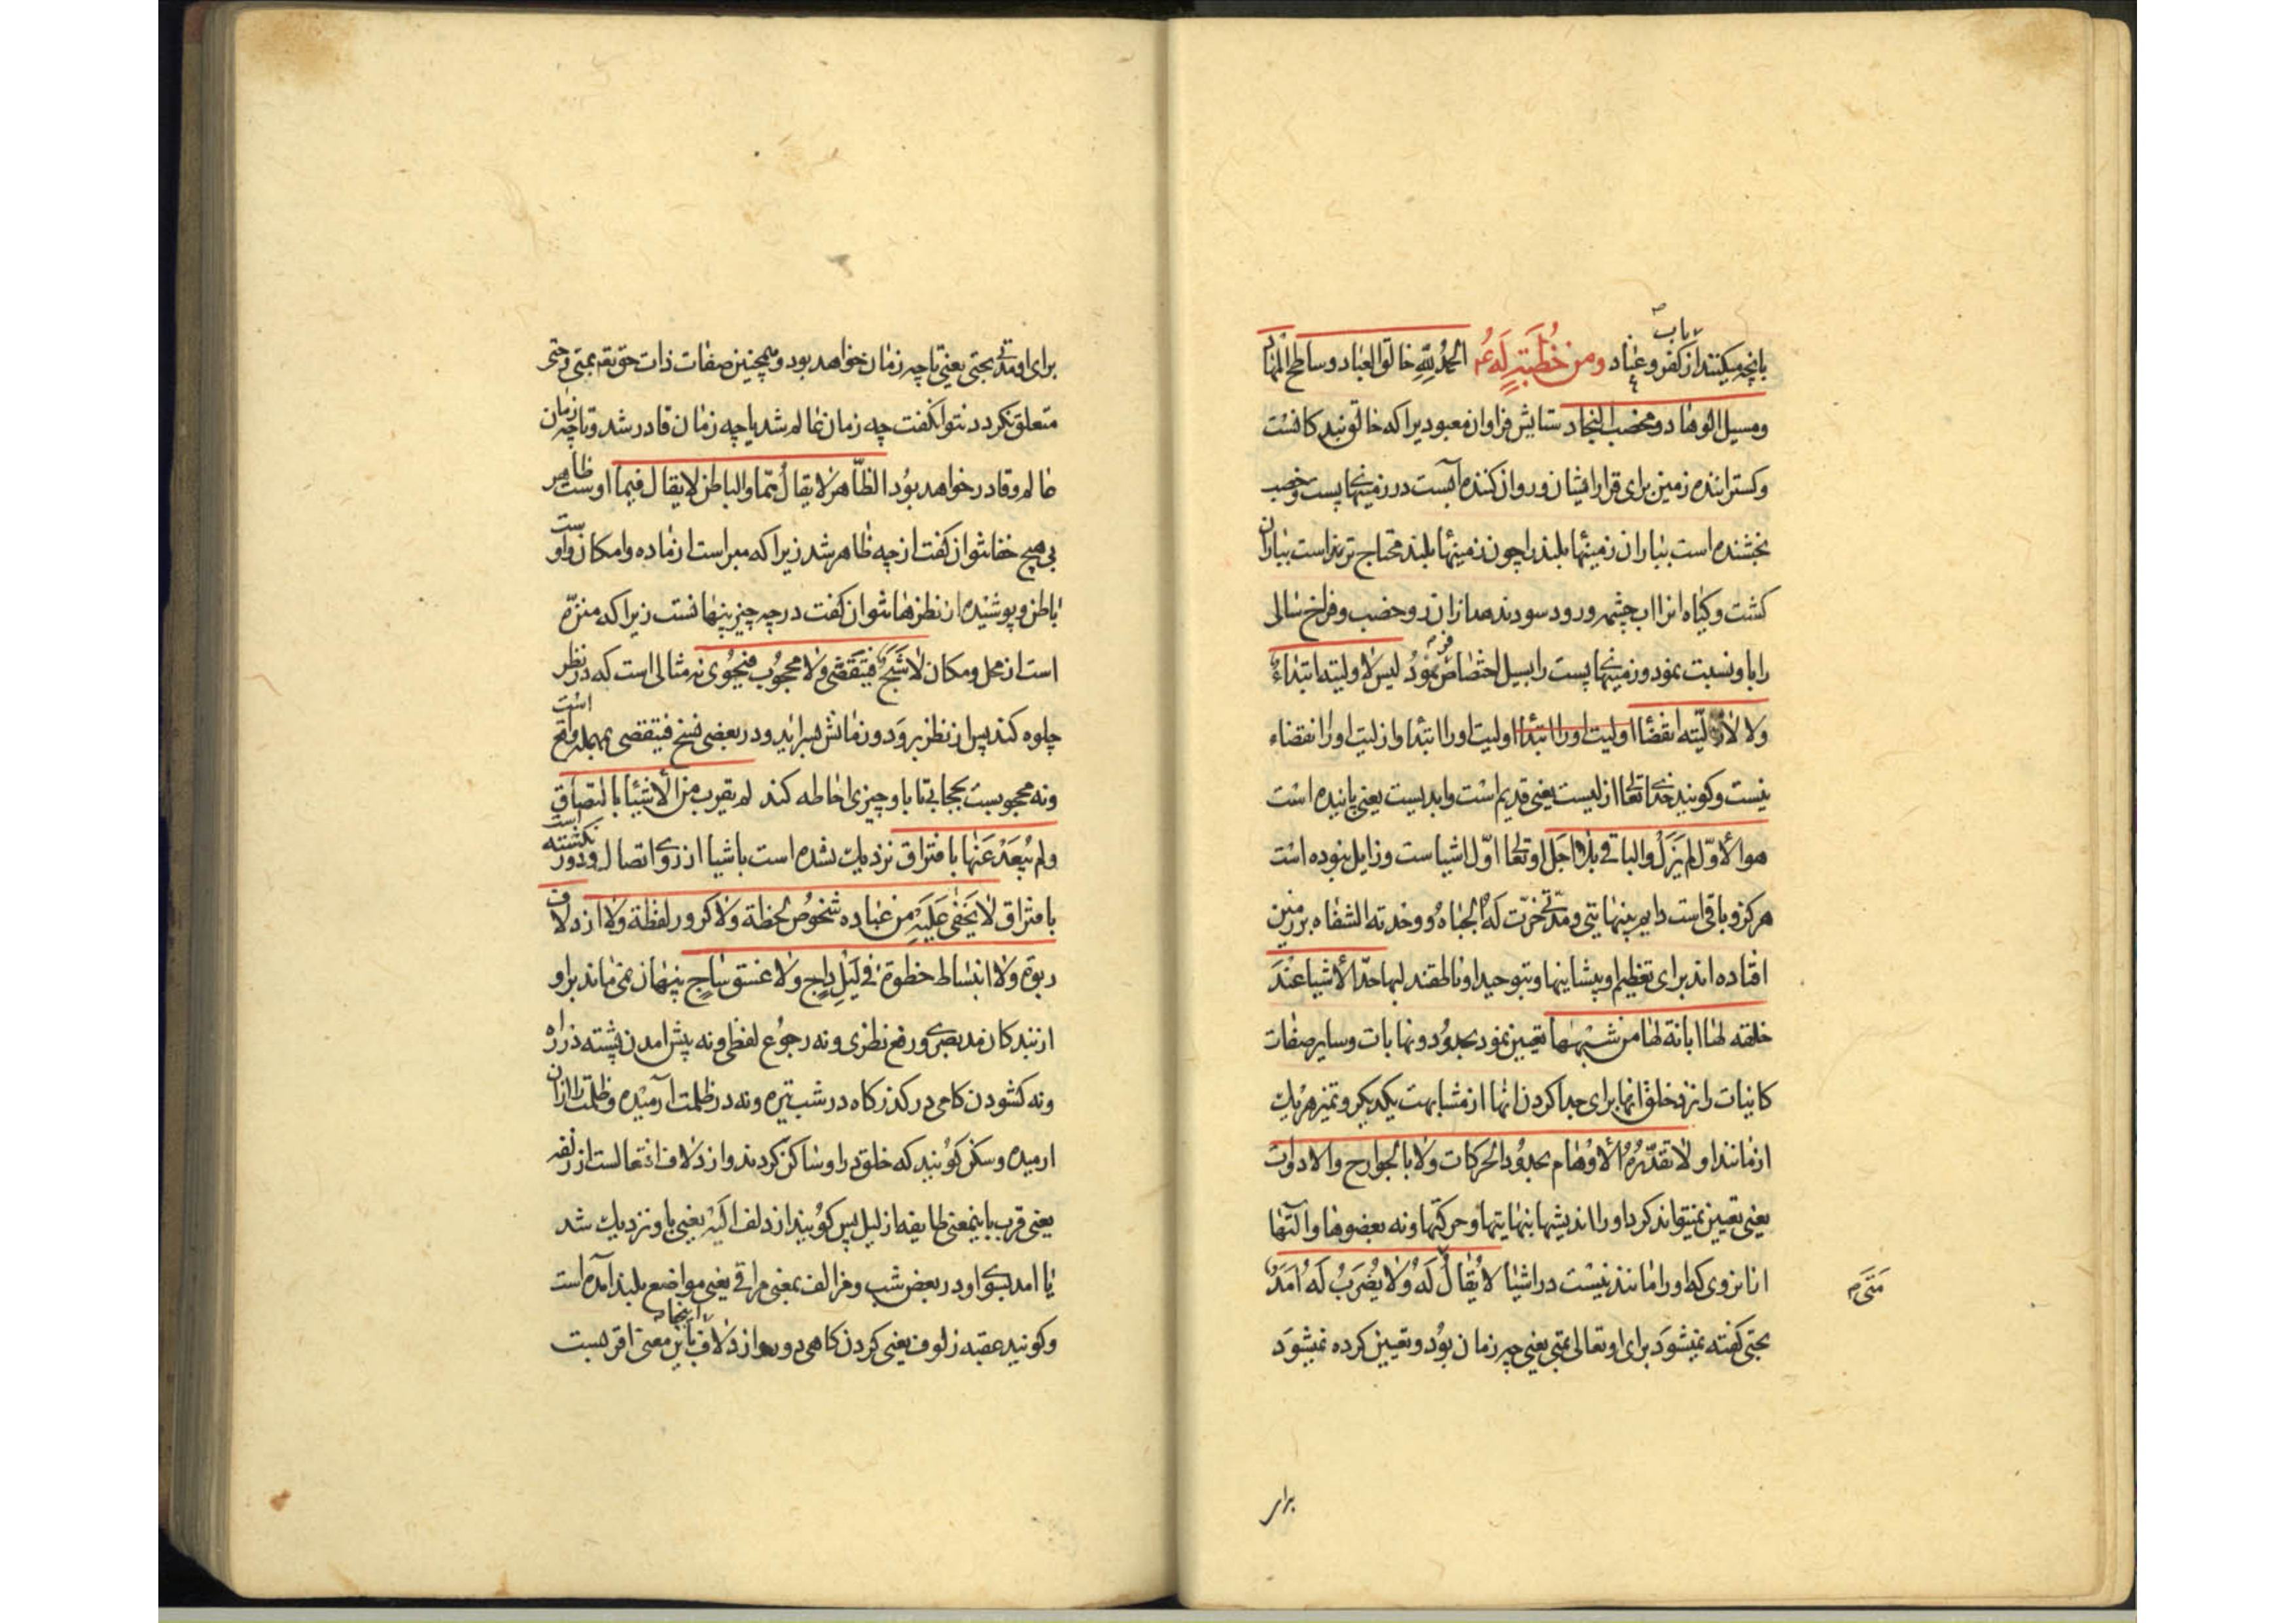 بانچه میکنند از کفر و عناد ومن خُطبَتِهِ لَهُ عم الحمدُ لِلّهِ خالق العباد وساطح المهاد
باب
ومسیل الوهاد ومخصب النجاد ستایش فراوان معبودیرا که خالق بندکانست
وکستراننده زمین برای قرار ایشان وروان کننده آبست در زمینهای پست وخصب
بخشنده است بباران زمینها بلند را چون زمینها بلند محتاج ترند است بباران
کشت وکیاه انرا اب چشمه ورود سود ندهد ازان رو خصب وفراخ سالی
را باو نسبت نمود وزمینهای پست را بسیل اختصاص نمود لیس لاولیته ابتداء
ولا لازلیّته انقضا اولیت اورا ابتدا اولیت اورا ابتدا وازلیت اورا انقضاء
نیست وکویند خدای تعالی ازلیست یعنی قدیم است وابدیست یعنی پاینده است
هو الأوّل لم یَزَلْ والباقی بلا اجل او تعالی اوّل اشیاست وزایل نبوده است
هرکز وباقی است دایم بینهایتی ومدّتی خرّت لَهُ الجباهُ ووحدته الشفاه بر زمین
افتاده اند برای تعظیم او پیشانیها وبتوحید او ناطقند لبها حدّ الأشیا عندَ
خلقه لها ابانة لها من شبهها تعیین نمود بحدُود ونهایات وسایر صفات
کاینات را نزد خلق انها برای جدا کردن انها از مشابهت یکدیکر وتمیز هر یك
از مانند او لا تقدّرُهُ الأوهام بحدُود الحرکات ولا بالجوارح والادوات
یعنی تعیین نمیتواند کرد اورا اندیشها بنهایتها وحرکتها ونه بعضوها وآلتها
ازانروی که اورا مانند نیست در اشیا لا یُقالُ لَهُ وَلا یُضرَبُ لَهُ اَمَدٌ
مَتَی م
بحتی کفته نمیشود برای او تعالی متی یعنی چه زمان بوُد وتعیین کرده نمیشود
برای
برای او مدتی بحتی یعنی تا چه زمان خواهد بود وهمچنین صفات ذات حق بقمتی وحتی
متعلق نکردد نتوان کفت چه زمان عالم شد یا چه زمان قادر شد وتا چه زمان
عالم وقادر خواهد بوُد الظّاهر لا یقالُ ممّا والباطن لا یقال فیما اوست ظاهر
بی هیچ خفا نتوان کفت از چه ظاهر شد زیرا که مبراست از ماده وامکان واوست
باطن وپوشیده از نظرها نتوان کفت در چه چیز پنهانست زیرا که منزّه
است از محل ومکان لا شَبَحٌ فیَتَقَضّی ولا محجُوب فیحُوی نه مثالی است که در نظر
جلوه کند پس از نظر برود وزمانش سراید ودر بعضی نسخ فیتقصی بمهمله واقع است
ونه محجوبست بحجابی تا باو چیزی احاطه کند لم یقرب من الأشیا بالتصاق
ولم یَبْعُدْ عَنها بافتراق نزدیك نشده است باشیا از روی اتصال ودور نکشته است
بافتراق لا یَخفی عَلَیهِ من عباده شخوصُ لحظة ولا کرور لفظة ولا ازدلاف
ربوة ولا انبساط خطوة فی لَیلٍ داجٍ ولا غسق ساجٍ پنهان نمی ماند بر او
از بندکان مد بصری ورفع نظری ونه رجوُع لفظی ونه پیش امدن پشته در راه
ونه کشودن کامی در کذرکاه در شب تیره ونه در ظلمت آرمیده وظلمت را ازان
ارمیده وساکن کوُیند که خلق در او ساکن کردند وازدلاف افتعالست از زلفه
یعنی قرب باینمعنی طایفه از لیل پس کوُیند ازدلف الَیْهِ یعنی باو نزدیك شد
یا امد بسوی او در بعض شب ومزالف بمعنی مراقی یعنی مواضع بلند آمده است
وکویند عقبه زلوف یعنی کردن کاهی دور وازدلاف اینجا باین معنی اقربست